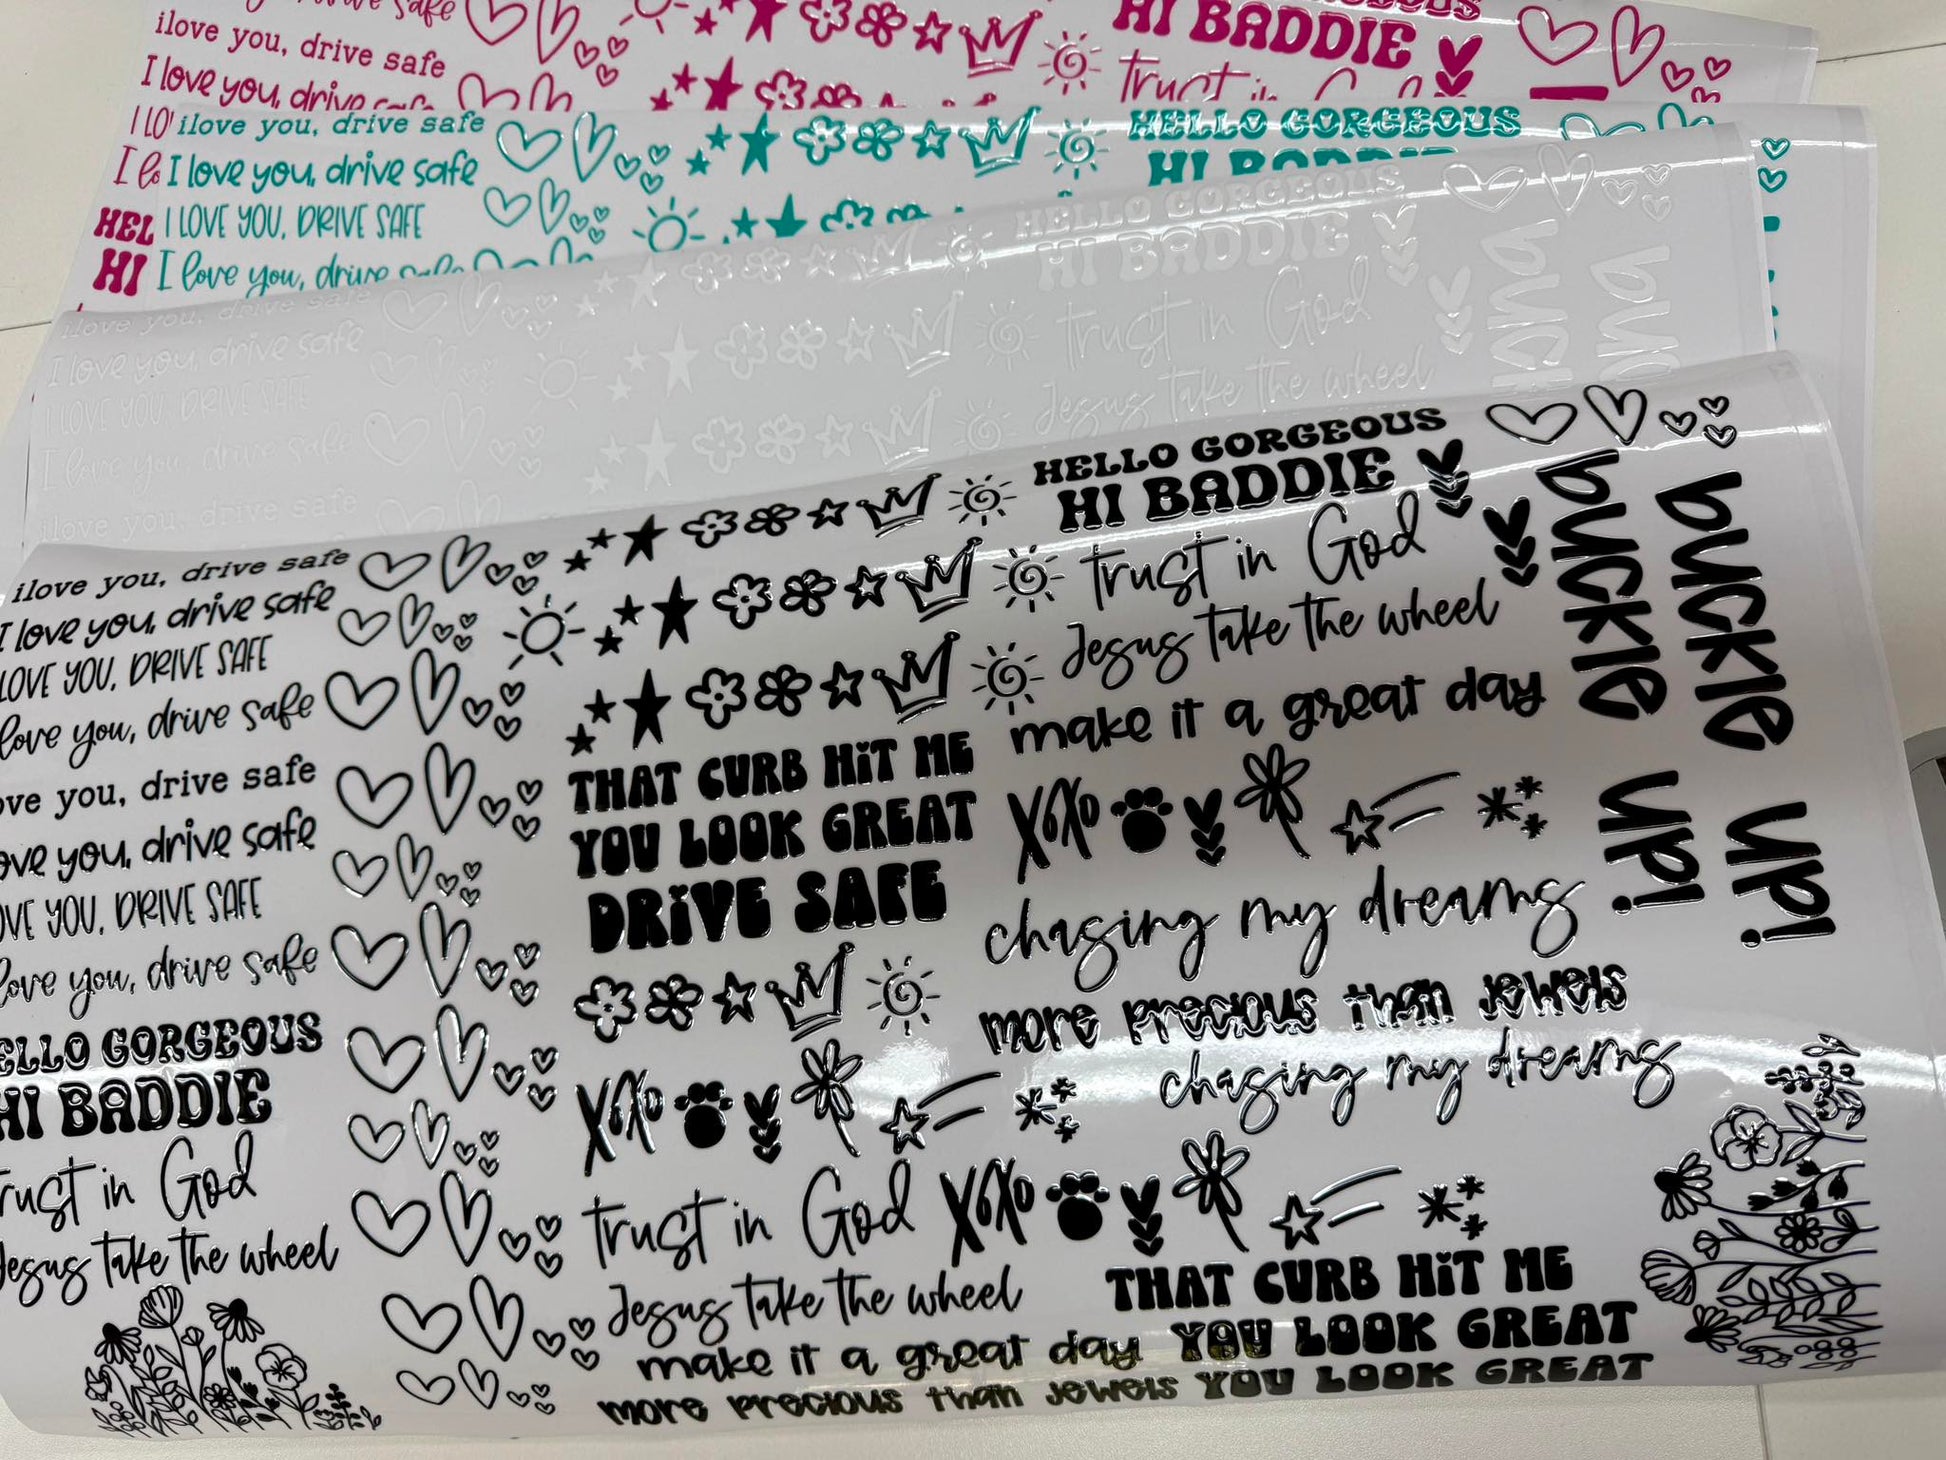 ilove you, drive safe
I love you, drive safe
HI BADDIE
trust in God
I LO
I
HEL
HI
ilove you, drive safe
I love you, drive safe
I LOVE YOU, DRIVE SAFE
I love you, drive safe
HELLO GORGEOUS
HI BADDIE
ilove you, drive safe
I love you, drive safe
I LOVE YOU, DRIVE SAFE
I love you, drive safe
ilove you, drive safe
HELLO GORGEOUS
HI BADDIE
trust in God
Jesus take the wheel
ilove you, drive safe
I love you, drive safe
LOVE YOU, DRIVE SAFE
love you, drive safe
ove you, drive safe
ove you, drive safe
OVE YOU, DRIVE SAFE
love you, drive safe
ELLO GORGEOUS
HI BADDIE
trust in God
Jesus take the wheel
THAT CURB HIT ME
YOU LOOK GREAT
DRIVE SAFE
xoxo
trust in God
Jesus take the wheel
make it a great day
more precious than jewels
HELLO GORGEOUS
HI BADDIE
trust in God
Jesus take the wheel
make it a great day
xoxo
chasing my dreams
more precious than jewels
chasing my dreams
xoxo
THAT CURB HIT ME
YOU LOOK GREAT
YOU LOOK GREAT
buckle up!
buckle up!